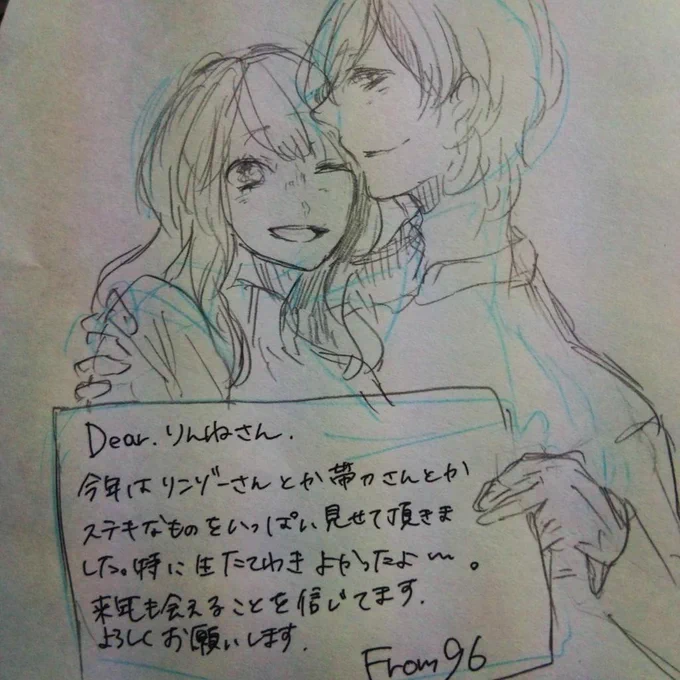 Dear. りんねさん.
今年はリンゾーさんとか帯刀さんとか
ステキなものをいっぱい見せて頂きま
した。特に生たてわきよかったよ〜。
来年も会えることを信じてます.
よろしくお願いします.
From 96